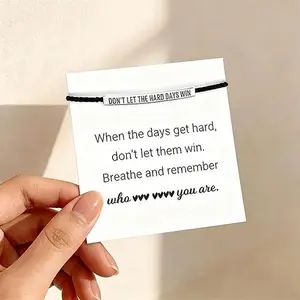 DON'T LET THE HARD DAYS WIN
When the days get hard,
don't let them win.
Breathe and remember
who ♥♥ ♥♥♥ you are.